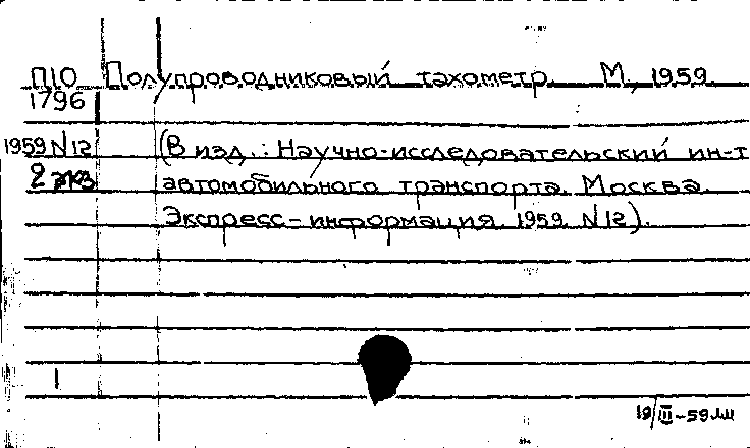 П10 Полупроводниковый тахометр. М., 1959.
1796
1959 N12 (В изд.: Научно-исследовательский ин-т
2 экз автомобильного транспорта. Москва.
Экспресс-информация. 1959. N12).
1
19/III-59